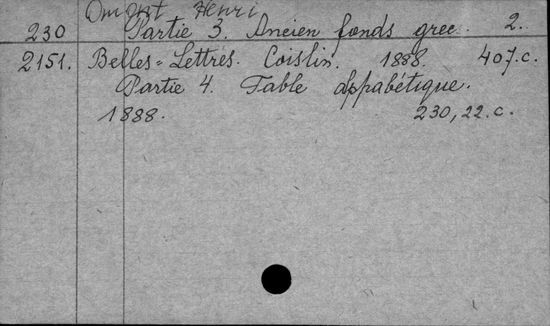 Omont Henri
230 Partie 3. Ancien fonds grec. 2.
2151. Belles-Lettres. Coislin. 1888. 407.c.
Partie 4. Table alppabétique.
1888. 230,22.c.